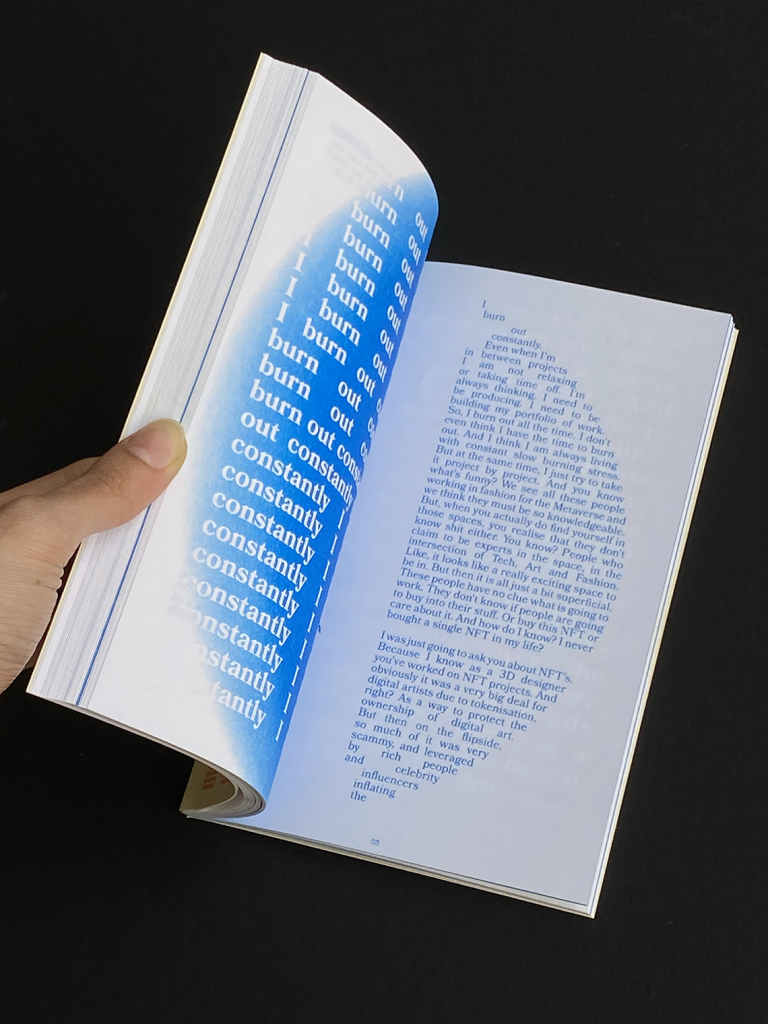 burn out
burn out
burn out
burn out
I burn out
I burn out
I burn out
burn out
burn out
burn out
out constantly
constantly I
constantly I
constantly I
constantly I
constantly I
constantly I
constantly I
nstantly I
tantly I
I
burn
out
constantly.
Even when I'm
in between projects
I am not relaxing
or taking time off. I'm
always thinking, I need to
be producing. I need to be
building my portfolio of work.
So, I burn out all the time. I don't
even think I have the time to burn
out. And I think I am always living
with constant slow burning stress.
But at the same time, I just try to take
it project by project. And you know
what's funny? We see all these people
working in fashion for the Metaverse and
we think they must be so knowledgeable.
But, when you actually do find yourself in
those spaces, you realise that they don't
know shit either. You know? People who
claim to be experts in the space, in the
intersection of Tech, Art and Fashion.
Like, it looks like a really exciting space to
be in. But then it is all just a bit superficial.
These people have no clue what is going to
work. They don't know if people are going
to buy into their stuff. Or buy this NFT or
care about it. And how do I know? I never
bought a single NFT in my life?
I was just going to ask you about NFT's.
Because I know as a 3D designer
you've worked on NFT projects. And
obviously it was a very big deal for
digital artists due to tokenisation,
right? As a way to protect the
ownership of digital art.
But then on the flipside,
so much of it was very
scammy, and leveraged
by rich people
and celebrity
influencers
inflating
the
63